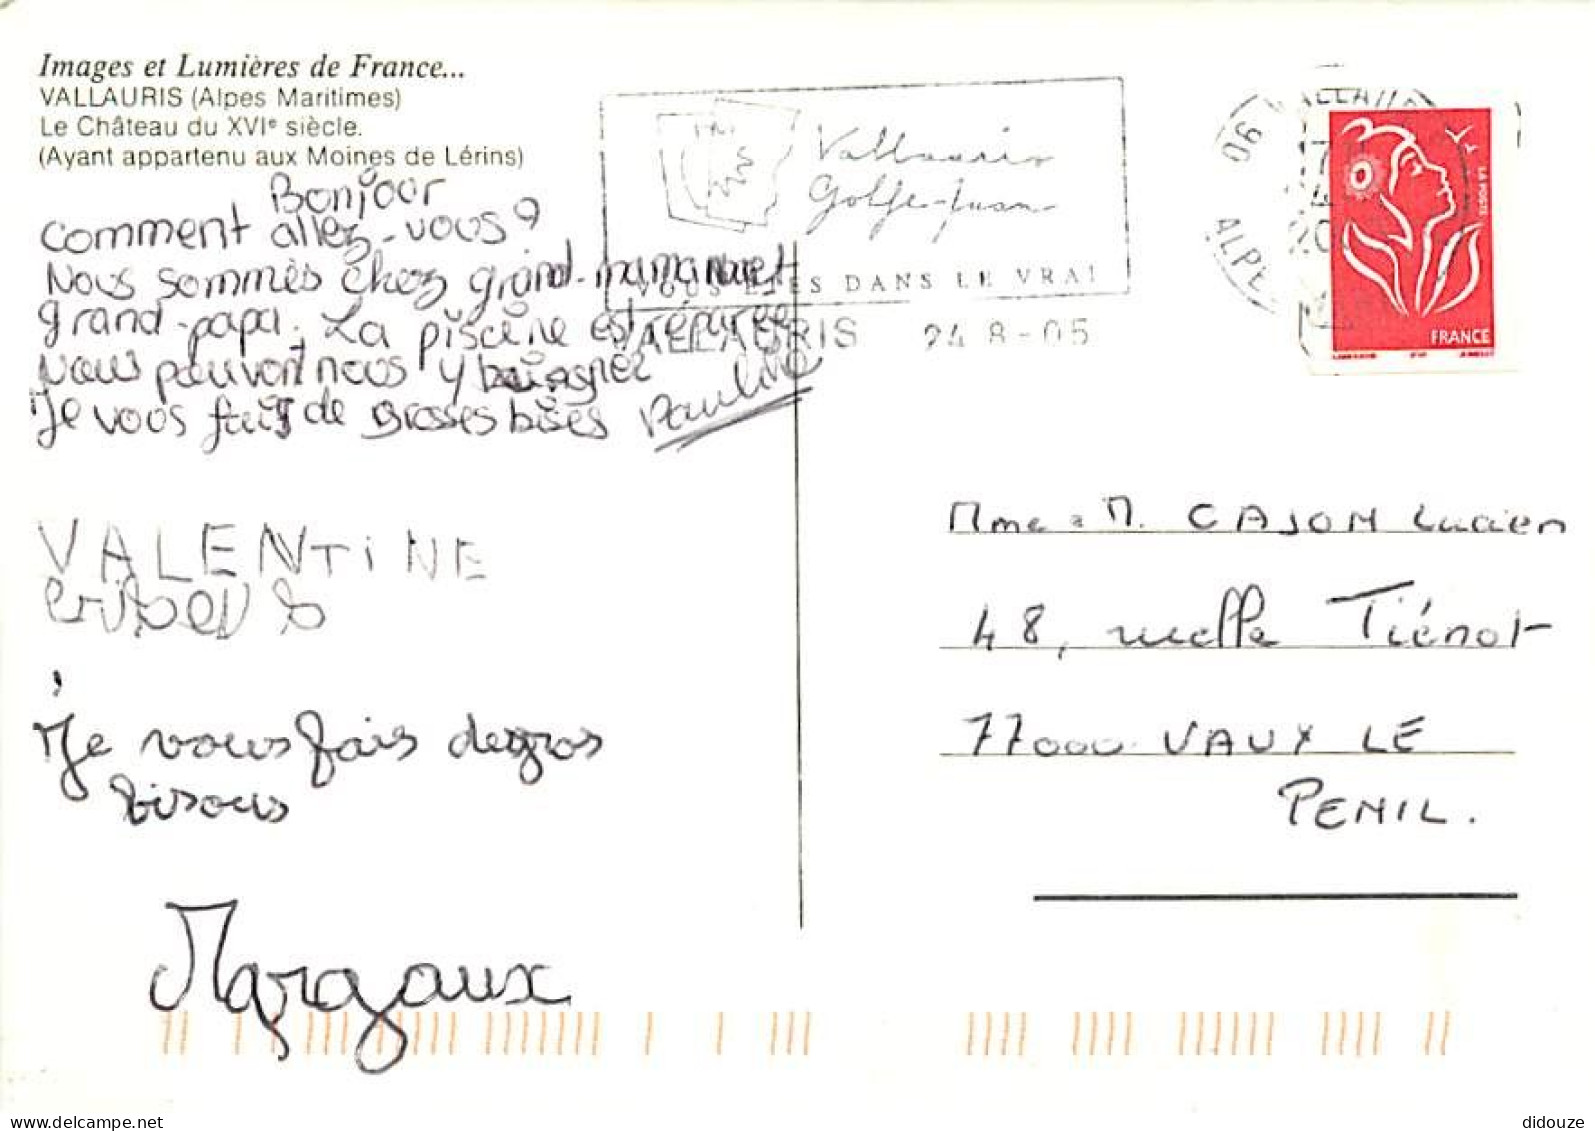 Images et Lumières de France...
VALLAURIS (Alpes Maritimes)
Le Château du XVIe siècle.
(Ayant appartenu aux Moines de Lérins)
Bonjour
comment allez-vous?
Nous sommes chez grand-maman et
grand-papa. La piscine est réparée
nous pouvont nous y baigner
Je vous fais de grosses bises Pauline
VALENTINE
Je vous fais degros
bisous
Margaux
Vallauris
Golfe-Juan
VOUS ETES DANS LE VRAI
VALLAURIS 24-8-05
06 VALLAURIS
ALPES
LA POSTE
FRANCE
Mme M. CAJON Lucien
48, ruelle Tiénot
77000 VAUX LE
PENIL.
delcampe.net
didouze